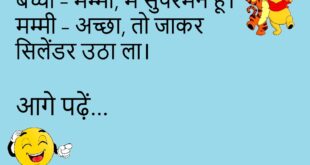 बच्चा – मम्मी, मैं सुपरमैन हूँ।
मम्मी – अच्छा, तो जाकर
सिलेंडर उठा ला।
आगे पढ़ें...